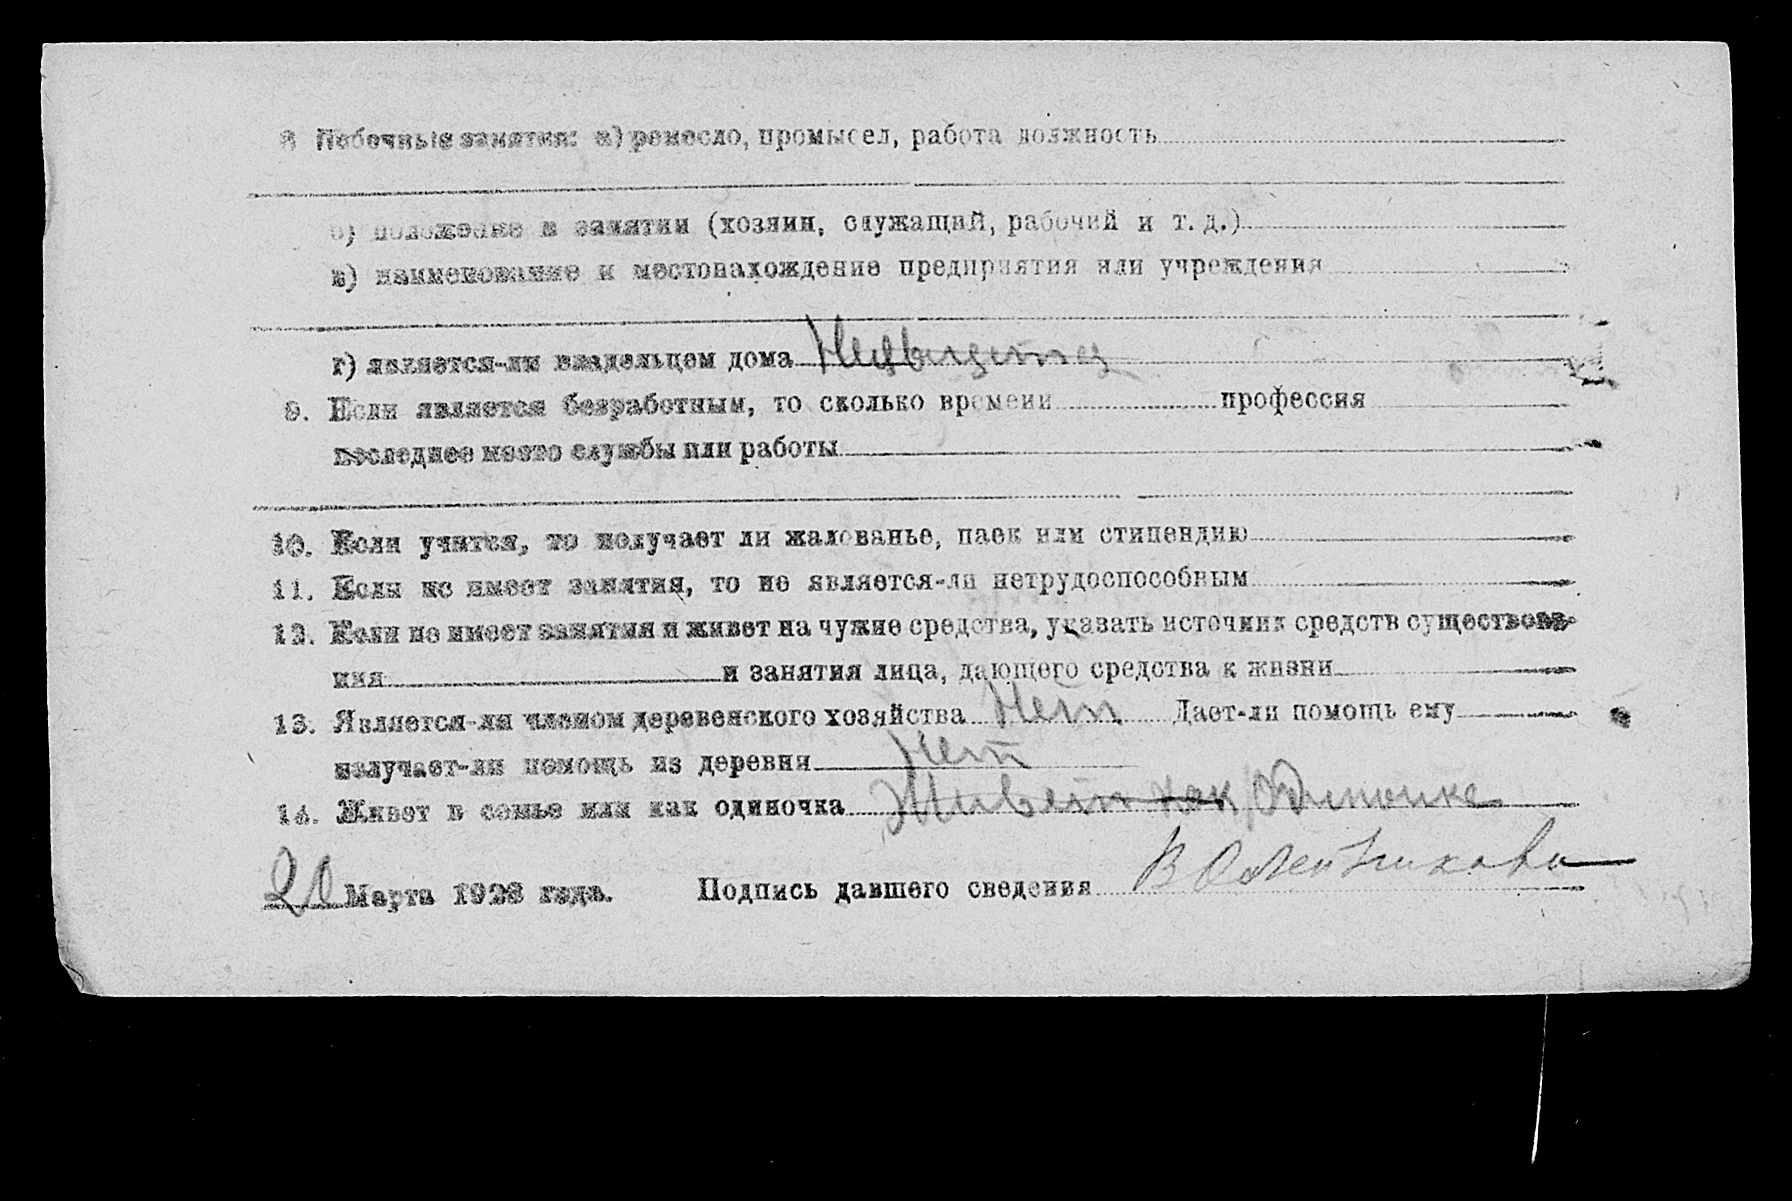 8 Побочные занятия: а) ремесло, промысел, работа должность
б) положение в занятии (хозяин, служащий, рабочий и т. д.)
в) наименование и местонахождение предприятия или учреждения
г) является-ли владельцем дома
9. Если является безработным, то сколько времени профессия
последнее место службы или работы
10. Если учится, то получает ли жалованье, паек или стипендию
11. Если не имеет занятия, то не является-ли нетрудоспособным
12. Если не имеет занятия и живет на чужие средства, указать источник средств существова-
ния и занятия лица, дающего средства к жизни
13. Является-ли членом деревенского хозяйства Нет Дает-ли помощь ему
получает-ли помощь из деревни Нет
14. Живет в семье или как одиночка Живет как Одиночка
20 Марта 1923 года. Подпись давшего сведения В Олейникова